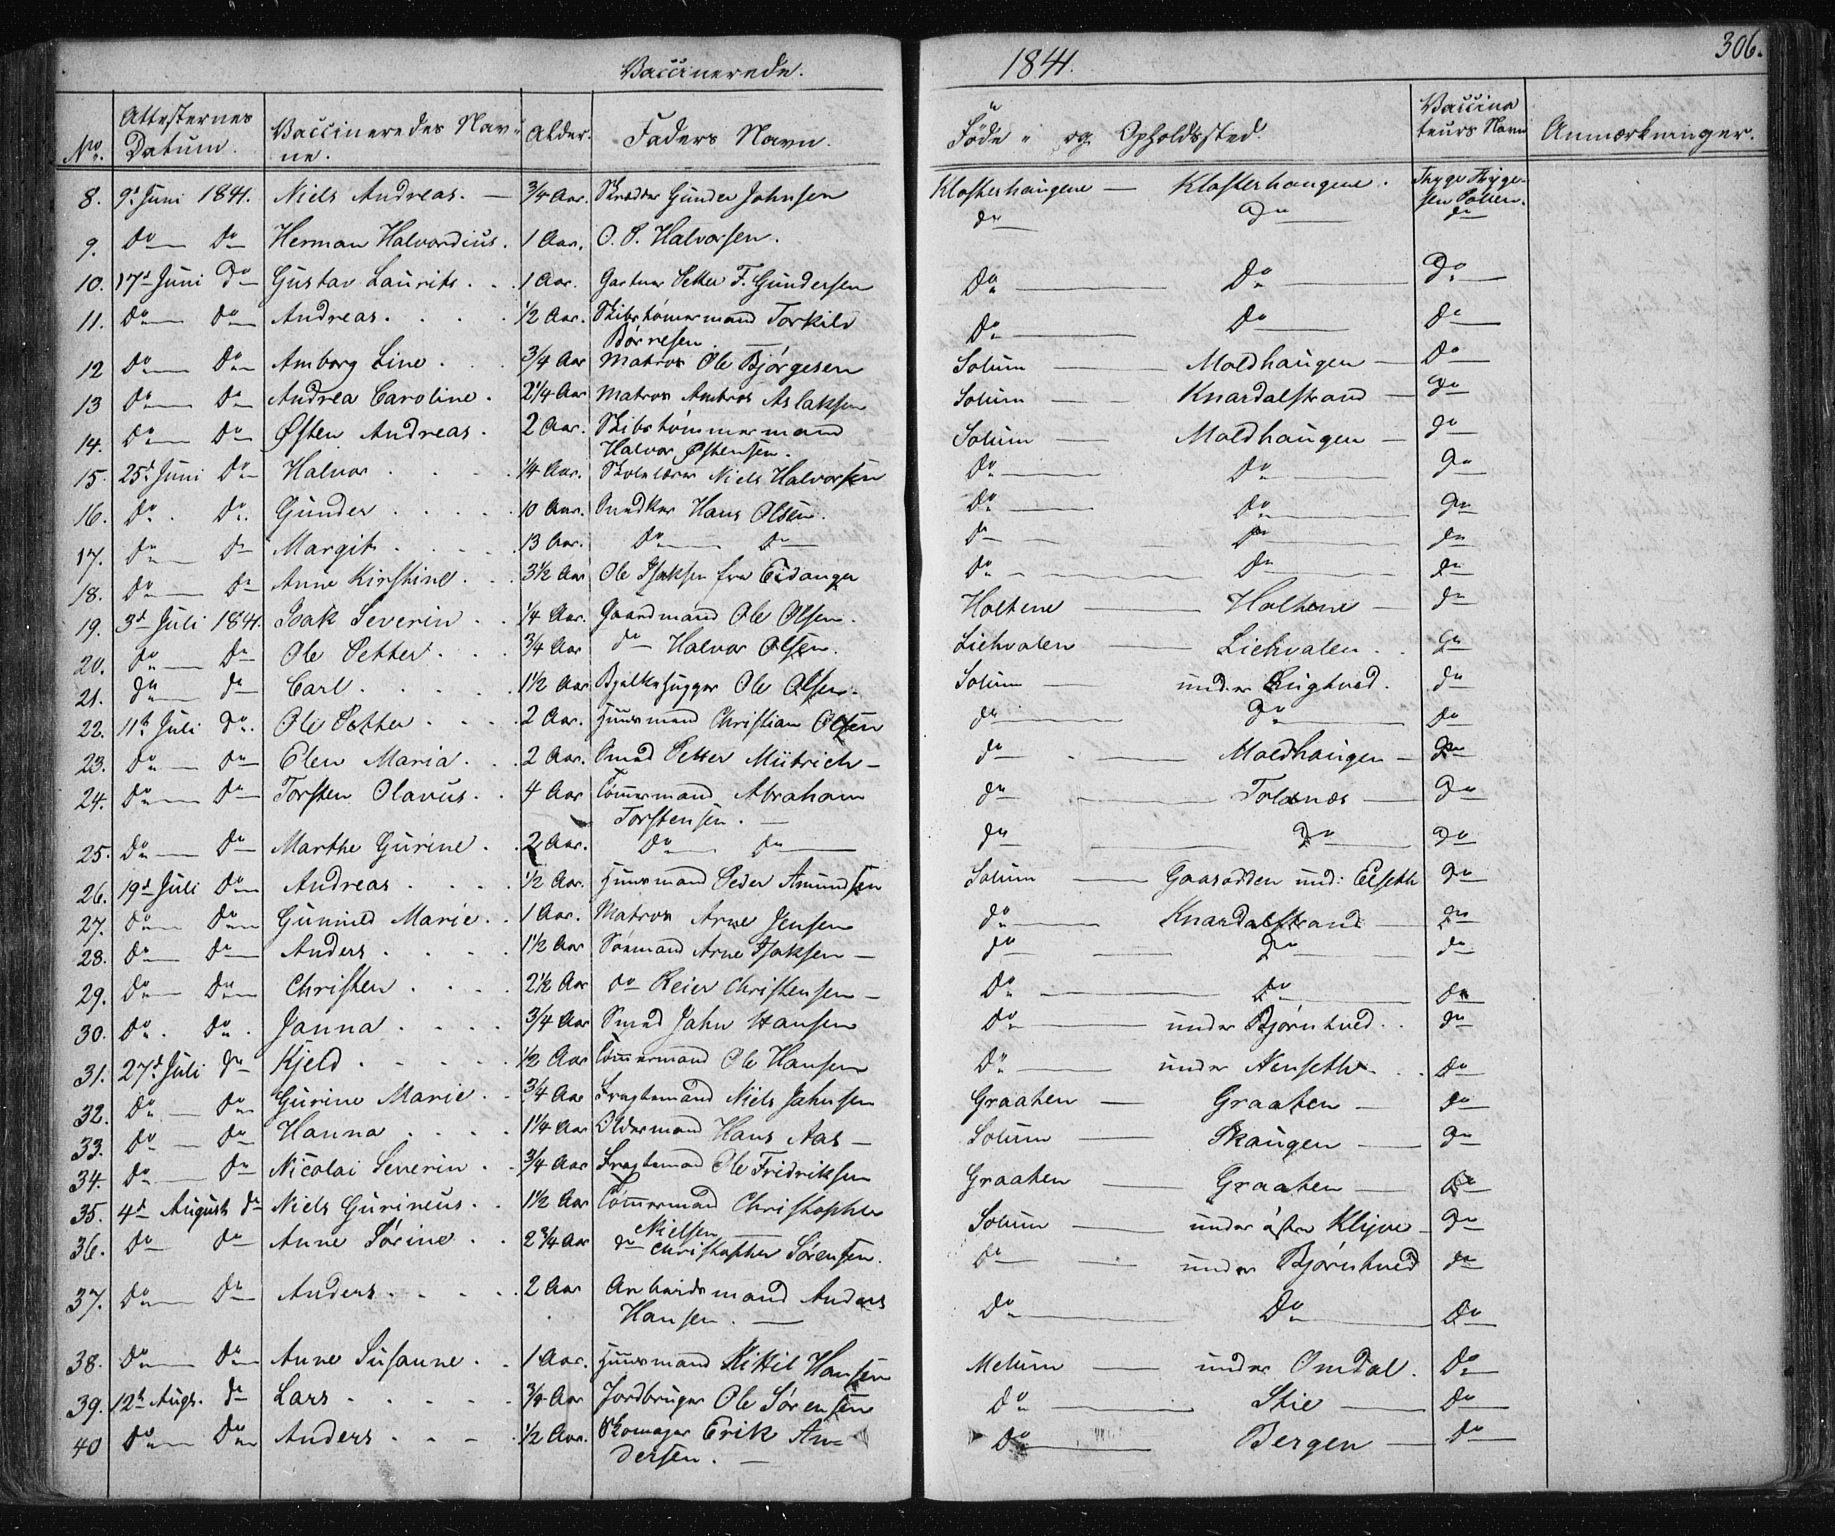 Vaccinerede. 1841. 306.
No. Attesternes Datum. Vaccineredes Navne. Alder. Faders Navn. Føde- og Opholdssted. Vaccinateurs Navn Anmærkninger.
8. 9d Juni 1841. Niels Andreas. — 3/4 Aar. Skrædder Gunder Johnsen Klosterhaugene — Klosterhaugene. Thyge Thygesen Polsen.
9. Do Do Herman Halvardius. 1 Aar. O. P. Halvorsen. do Do do
10. 17d Juni Do Gustav Laurits. 1 Aar. Gartner Petter F. Gundersen Do Do Do
11. Do Do Andreas. 1/2 Aar. Skibstømermand Torkild Børresen. Do Do Do
12 Do Do Amborg Line. 3/4 Aar Matros Ole Bjørgesen Solum — Moldhaugen — Do
13 Do Do Andrea Caroline. 2 1/4 Aar Matros Ambros Aslaksen Solum — Knardalstrand — Do
14. Do Do Østen Andreas. 2 Aar. Skibstømmermand Halvor Østensen. Solum — Moldhaugen — do
15. 25d Juni Do Halvor 1/4 Aar. Skolelærer Niels Halvorsen Do Do Do
16. Do. Do. Gunder 10 Aar. Snedker Hans Olsen. Do Do Do
17. Do Do Margit 13 Aar. Do Do Do Do do
18. Do Do Anne Kirstine. 3 1/2 Aar Ole Isaksen fra Eidanger Do Do do
19. 3d Juli 1841. Isak Severin 1/4 Aar. Gaardmand Ole Olsen. Holtene — Holtene — do
20. Do Do Ole Petter 3/4 Aar do Halvor Olsen. Liehvalen — Liehvalen. do
21. do do Carl 1 1/2 Aar Bjelkehugger Ole Olsen. Solum — under do
22. 11te Juli do. Ole Petter 2 Aar. Huusmand Christian Olsen do Do Do
23. Do Do Elen Maria. 2 Aar. Smed Petter Mütrich — do — Moldhaugen — Do
24. Do Do Torsten Olavus. 4 Aar Tømermand Abraham Torstensen. — do — Tolsnæs — Do
25. Do Do Marthe Gurine. 2 Aar. Do Do do Do Do
26. 19d Juli Do Andreas 1/2 Aar. Huusmand Peder Amundsen Solum — Gaasodden und: Elseth Do
27. Do Do Gunild Marie. 1 Aar. Matros Arne Jensen do — Knardalstrand — do
28. Do Do Anders 1 1/2 Aar Sømand Arne Isaksen — do Do do
29. Do Do Christen 2 1/2 Aar do Reier Christensen — Do Do do
30. Do. Do. Janna 3/4 Aar Smed Jahn Hansen Do — under Bjørntved. do
31. 27d Juli do Kjeld 1/2 Aar Tømermand Ole Hansen Do — under Nenseth. Do
32. Do Do Gurine Marie. 3/4 Aar Fragtemand Niels Jahnsen Graaten — Graaten — do
33. Do Do Hanna 1 1/4 Aar Oldermand Hans Aas — Solum — Skaugen — Do
34. Do Do Nicolai Severin. 3/4 Aar Fragtemand Ole Fridriksen Graaten — Graaten — Do
35. 4d August do Niels Gurineus. 1 1/2 Aar Tømermand Christopher Nielsen Solum — under østre Klyve — Do
36. Do Do Anne Sørine 2 3/4 Aar do Christopher Sørensen. Do — under Bjørntved do
37. Do Do Anders 2 Aar Arbeidsmand Anders Hansen. — Do Do Do
38. Do Do Anne Susanne. 1 Aar. Huusmand Kittil Hansen Melum — under Omdal. Do
39. 12te Augs. do Lars 3/4 Aar Jordbruger Ole Sørensen Do — Stie — Do
40 Do Do Anders 1/2 Aar. Skomager Erik Andersen. — Do — Bergen — Do